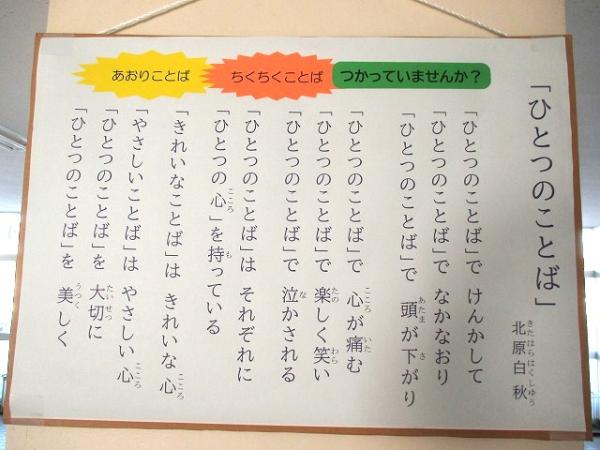 「ひとつのことば」
北原白秋
きたはらはくしゅう
つかっていませんか？
ちくちくことば
あおりことば
「ひとつのことば」で けんかして
「ひとつのことば」で なかなおり
「ひとつのことば」で 頭が下がり
あたま さ
「ひとつのことば」で 心が痛む
こころ いた
「ひとつのことば」で 楽しく笑い
たの わら
「ひとつのことば」で 泣かされる
な
「ひとつのことば」は それぞれに
「ひとつの心」を持っている
こころ も
「きれいなことば」は きれいな心
こころ
「やさしいことば」は やさしい心
こころ
「ひとつのことば」を 大切に
たいせつ
「ひとつのことば」を 美しく
うつく